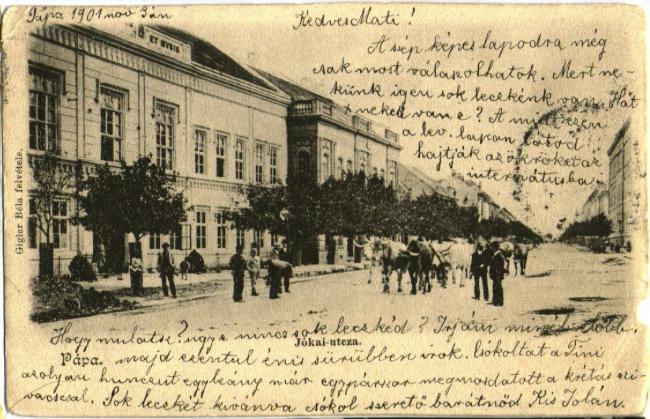 Pápa 1901 nov 3án
Kedves Mati!
A szép képes lapodra még
csak most válaszolhatok. Mert ne-
künk igen sok leczkénk van. Hát
neked van e? A mint ezen
a lev. lapon látod
hajtják az ökröket az
internátusba.
ET NVBIS
Gigler Béla felvétele.
Hogy mulatsz? ugye nincs sok leczkéd? Irjám minél előbb.
Jókai-utcza.
Pápa.
majd ezentul én is sürübben irok. Csókoltat a Tini
az olyan huncut egy leány már egy párszor megmosdatott a krétás szi-
vacscsal. Sok leczkét kivánva csókol szerető barátnőd Kis Jolán.